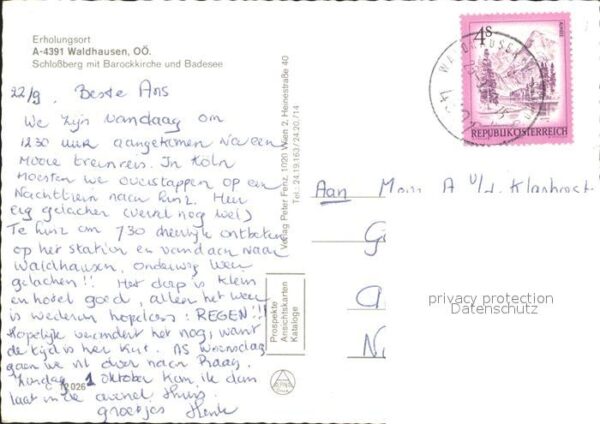 Erholungsort
A-4391 Waldhausen, OÖ.
Schloßberg mit Barockkirche und Badesee
22/9. Beste Ans
We zijn vandaag om
1230 uur aangekomen na een
mooie treinreis. In Köln
moesten we overstappen op een
nachttrein naar Linz. Heel
erg gelachen (vertel nog wel)
Te Linz om 730 heerlijk ontbeten
op het station en vandaar naar
Waldhausen, onderweg weer
gelachen!! Het dorp is klein
en hotel goed, alleen het weer
is wederom hopeloos: REGEN!!!
Hopelijk verandert het nog, want
de tijd is hier kort. AS Woensdag
gaan we vit door naar Praag.
Zondag 1 oktober kom ik dan
laat in de avond thuis.
groetjes Henk
12026
Verlag Peter Fenz, 1020 Wien 2, Heinestraße 40
Tel.: 24.19.163/24.20.714
Prospekte
Ansichtskarten
Kataloge
4S
REPUBLIK ÖSTERREICH
WALDHAUSEN
Aan Mej. A v/d. Klanbrock
privacy protection
Datenschutz